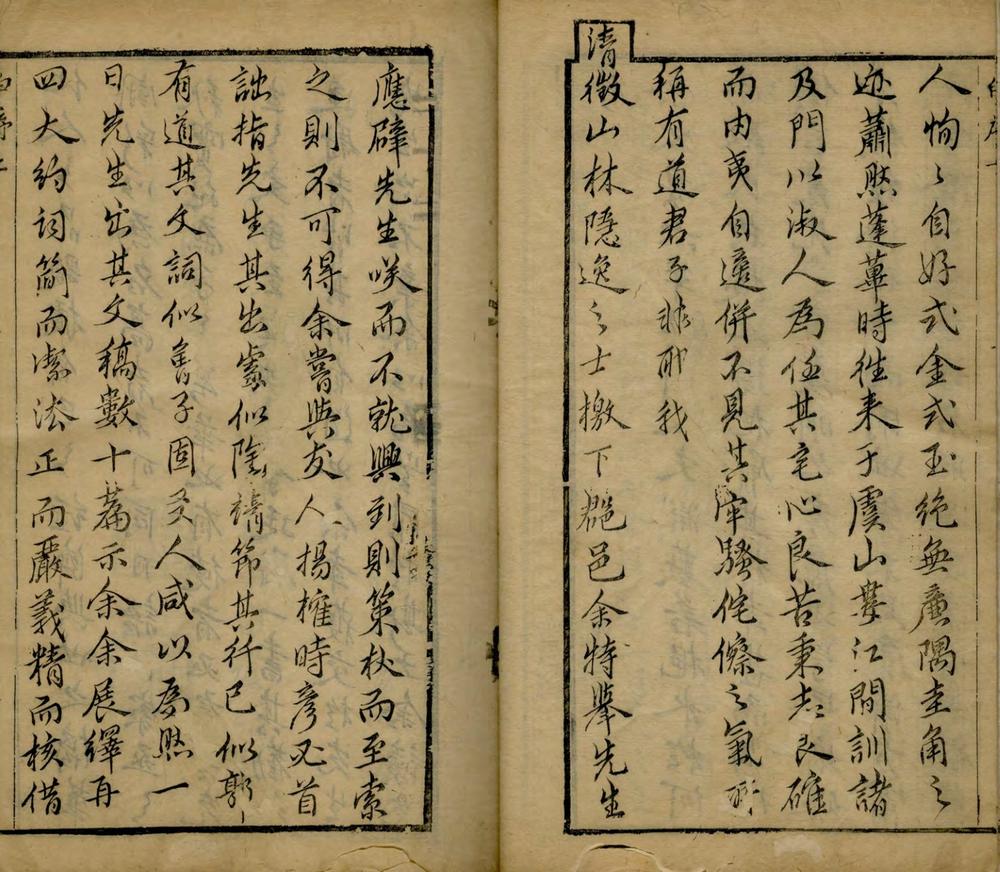 人恂〻自好式金式玉絕無廉隅圭角之
迹蕭然蓬蓽時往来于虞山婁江間訓諸
及門以淑人為任其宅心良苦秉志良確
而由夷自適併不見其牢騷侘傺之氣所
稱有道君子非耶我
清徵山林隱逸之士檄下郡邑余特舉先生
應辟先生咲而不就興到則策杖而至索
之則不可得余嘗與友人揚搉時彥必首
詘指先生其出處似陶靖節其行已似郭
有道其文詞似曾子固友人咸以為然一
日先生出其文稿數十篇示余余展繹再
四大約詞簡而潔法正而嚴義精而核借